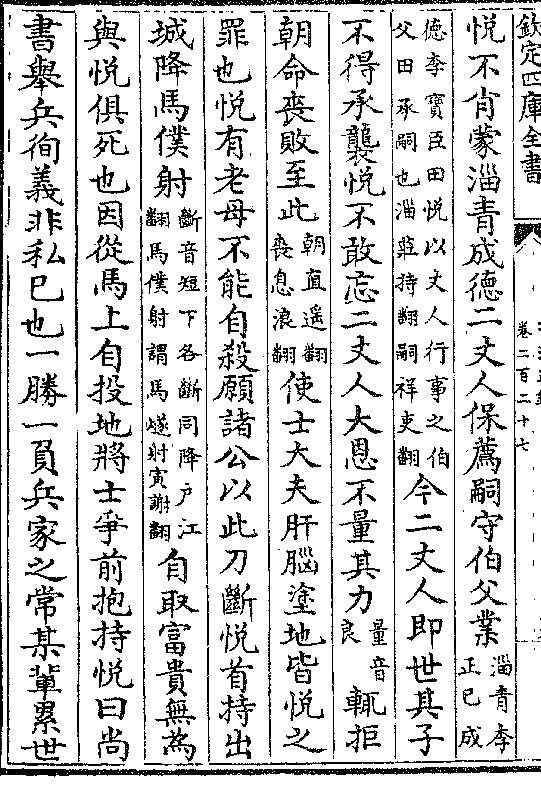 欽定四庫全書
卷二百二十七
悅不肖蒙淄青成德二丈人保薦嗣守伯父業淄青李正巳成
德李寶臣田悅以丈人行事之伯父田承嗣也淄莊持翻嗣祥吏翻今二丈人即世其子
不得承襲悅不敢忘二丈人大恩不量其力量音良輒拒
朝命喪敗至此朝直遥翻喪息浪翻使士大夫肝腦塗地皆悅之
罪也悅有老母不能自殺願諸公以此刀斷悅首持出
城降馬僕射斷音短下各斷同降户江翻馬僕射謂馬燧射寅謝翻自取富貴無為
與悅俱死也因從馬上自投地將士爭前抱持悅曰尚
書舉兵徇義非私巳也一勝一負兵家之常某輩累世